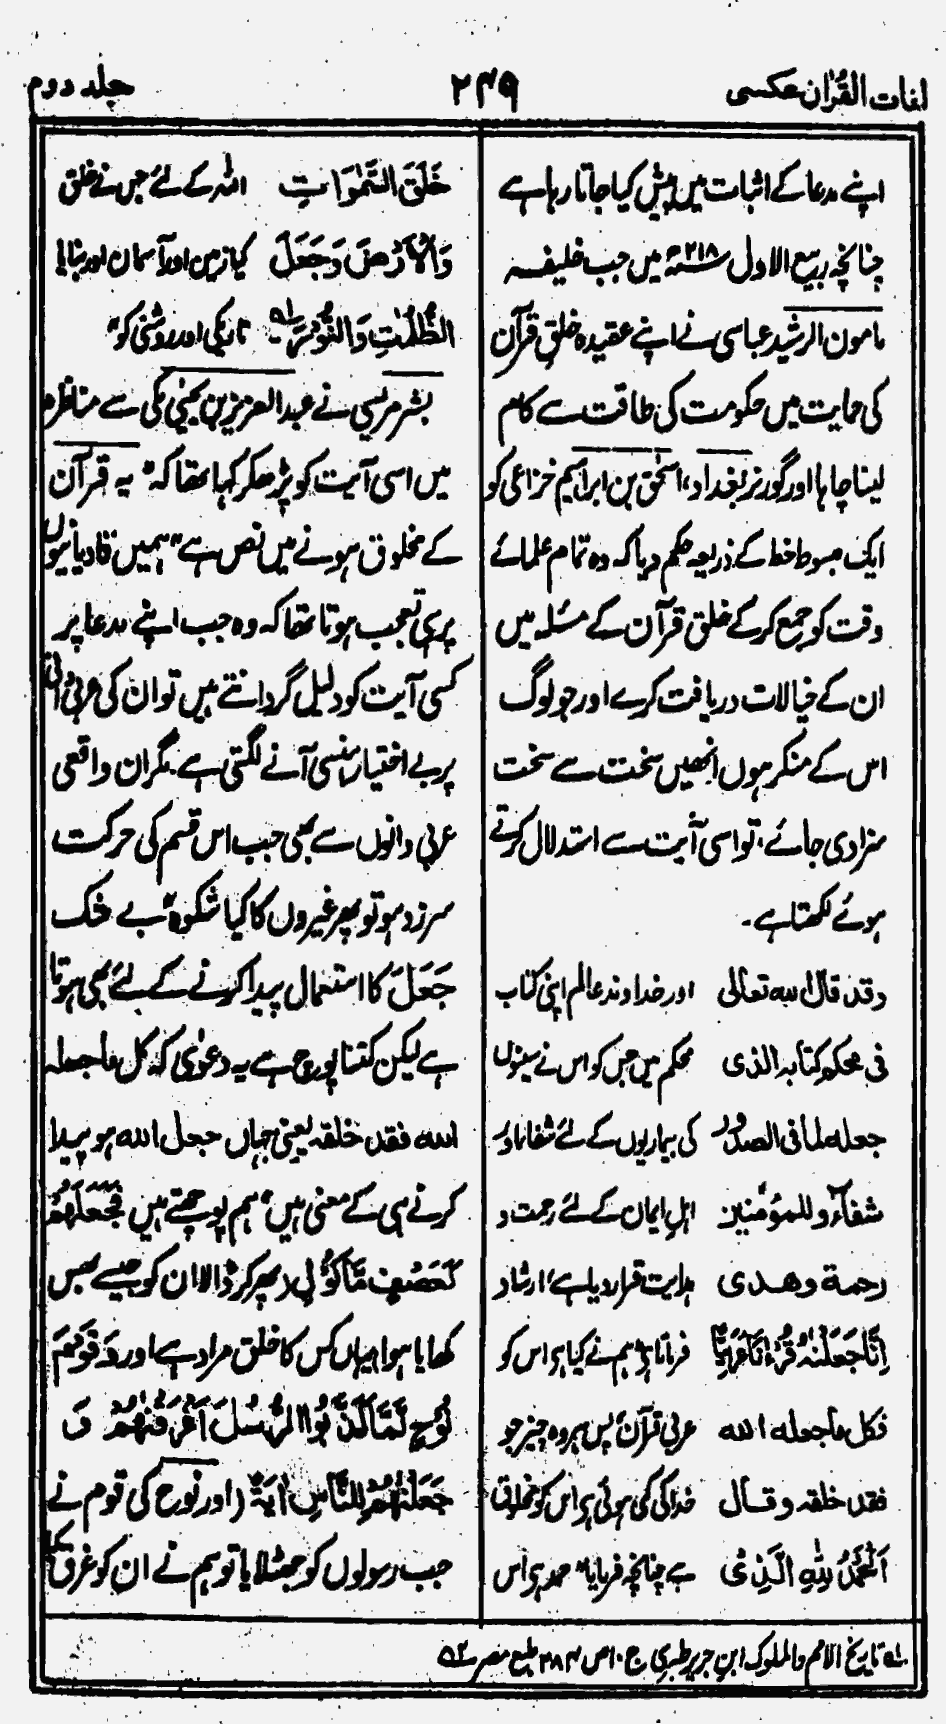 لغات القرآن عکسی
۲۴۹
جلد دوم
اپنے مدعا کے اثبات میں پیش کیا جاتا رہا ہے
چنانچہ ربیع الاول ۲۱۸ھ میں جب خلیفہ
مامون الرشید عباسی نے اپنے عقیدہ خلقِ قرآن
کی حمایت میں حکومت کی طاقت سے کام
لینا چاہا اور گورنر بغداد، اسحٰق بن ابراہیم خزاعی کو
ایک مبسوط خط کے ذریعہ حکم دیا کہ وہ تمام علمائے
وقت کو جمع کر کے خلق قرآن کے مسئلہ میں
ان کے خیالات دریافت کرے اور جو لوگ
اس کے منکر ہوں انھیں سخت سے سخت
سزا دی جائے، تو اسی آیت سے استدلال کرتے
ہوئے لکھتا ہے۔
وقد قال اللہ تعالی اور خداوند عالم اپنی کتاب
فی محکم کتابہ الذی محکم میں جس کو اس نے سینوں
جعلہ لما فی الصدور کی بیماریوں کے لئے شفا اور
شفاءً و للمؤمنین اہلِ ایمان کے لئے رحمت و
رحمة وھدی ہدایت قرار دیا ہے، ارشاد
اِنَّا جَعَلْنٰهُ قُرْاٰنًا عَرَبِیًّا فرماتا ہے ہم نے کیا ہے اس کو
فکل ما جعله الله عربی قرآن، پس ہر وہ چیز جو
فقد خلقه وقال خدا کی کی ہوئی ہے اس کو مخلوق
اَلْحَمْدُ لِلّٰهِ الَّذِیْ ہے چنانچہ فرمایا، حمد ہے اس
خَلَقَ السَّمٰوَاتِ اللہ کے لئے جس نے خلق
وَالْاَرْضَ وَجَعَلَ کیا زمین اور آسمان اور بنایا
الظُّلُمٰتِ وَالنُّوْرَ ؎۱ تاریکی اور روشنی کو"
بشر مریسی نے عبدالعزیز بن یحییٰ مکی سے مناظرہ
میں اسی آیت کو پڑھکر کہا تھا کہ "یہ قرآن
کے مخلوق ہونے میں نص ہے" ہمیں قادیانیوں
پر ہی تعجب ہوتا تھا کہ وہ جب اپنے مدعا پر
کسی آیت کو دلیل گردانتے ہیں تو ان کی عربی دانی
پر بے اختیار ہنسی آنے لگتی ہے۔ مگر ان واقعی
عربی دانوں سے بھی جب اس قسم کی حرکت
سرزد ہو تو پھر غیروں کا کیا شکوہ، بے شک
جَعَلَ کا استعمال پیدا کرنے کے لئے بھی ہوتا
ہے لیکن کتنا پوچ ہے یہ دعوٰی کہ کل ما جعله
الله فقد خلقه یعنی جہاں جعل اللہ ہو پیدا
کرنے ہی کے معنی ہیں، ہم پوچھتے ہیں فَجَعَلَهُمْ
كَعَصْفٍ مَّاْكُوْلٍ (پھر کر ڈالا ان کو جیسے بھس
کھایا ہوا) یہاں کس کا خلق مراد ہے اور وَقَوْمَ
نُوْحٍ لَّمَّا كَذَّبُوا الرُّسُلَ اَغْرَقْنٰهُمْ وَ
جَعَلْنٰهُمْ لِلنَّاسِ اٰيَةً (اور نوح کی قوم نے
جب رسولوں کو جھٹلایا تو ہم نے ان کو غرق کیا
؎۱ تاریخ الامم والملوک ابن جریر طبری ج ۱۰ ص ۲۸۴ طبع مصر